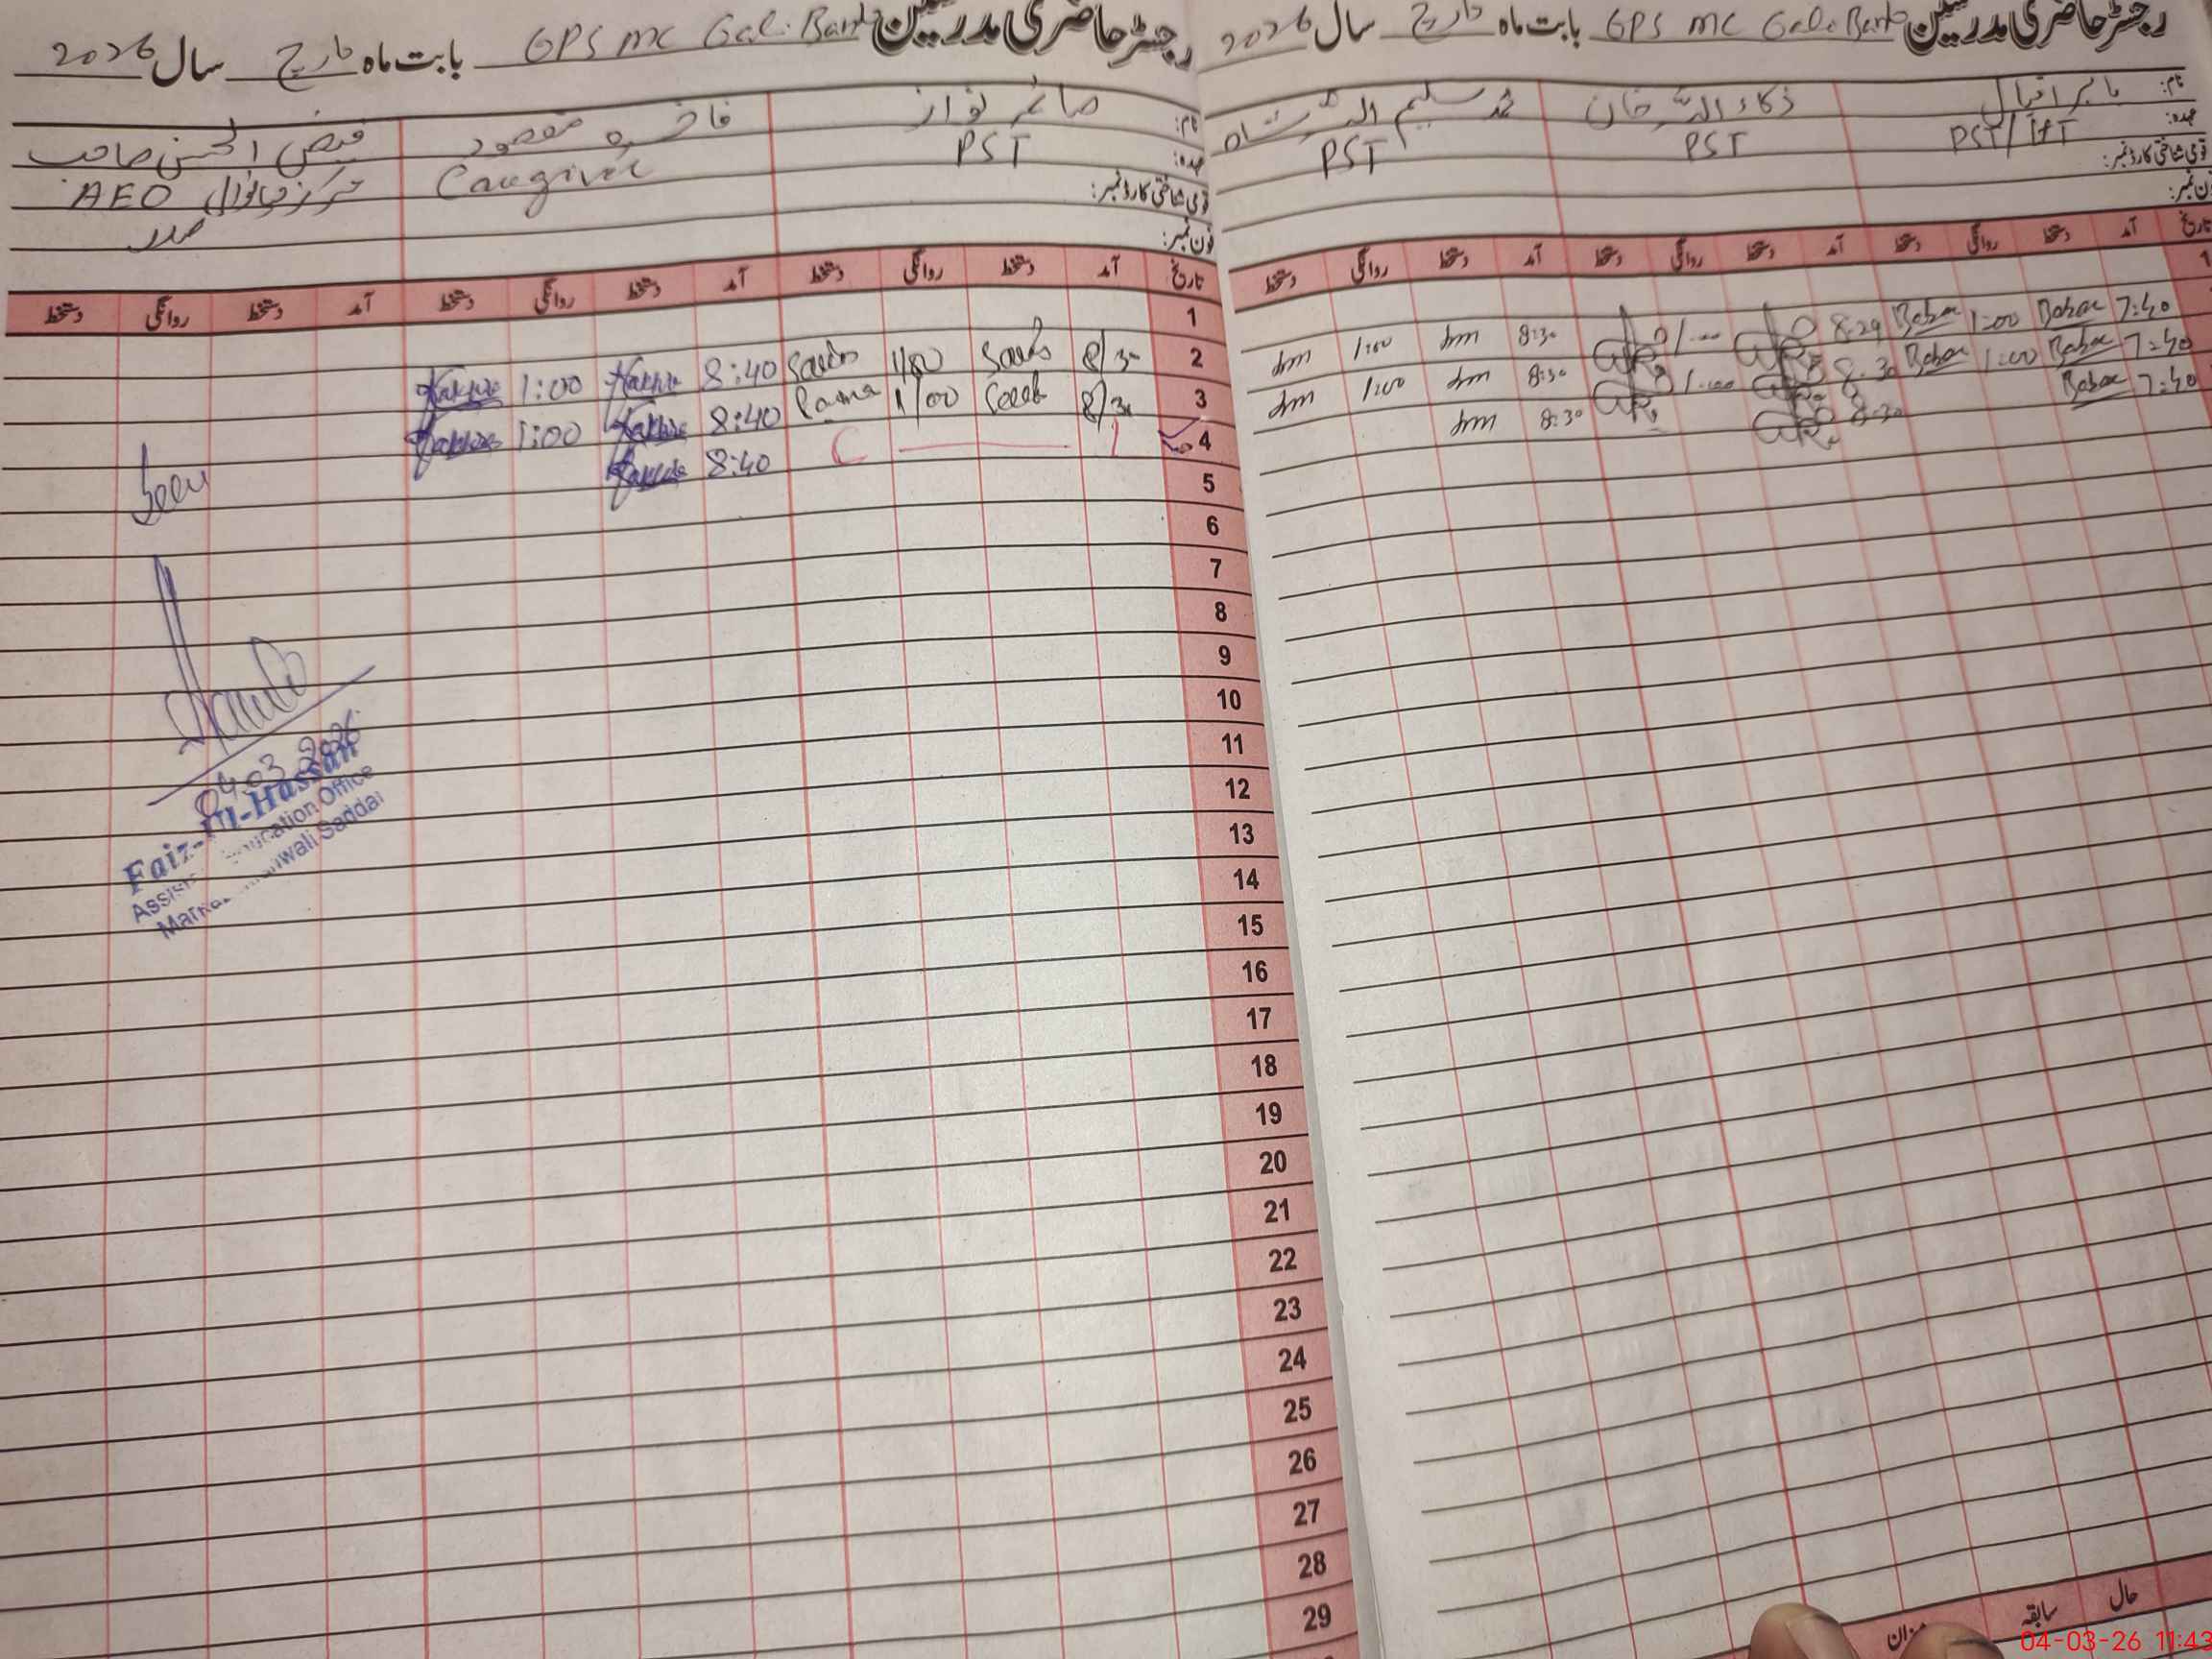 رجسٹر حاضری مدرسین GPS MC Gali Bank بابت ماہ مارچ سال 2026
نام: بابر اقبال ذکاء اللہ خان محمد سلیم اللہ شاہ
عہدہ: PST/ PST PST
قومی شناختی کارڈ نمبر:
فون نمبر:
تاریخ آمد دستخط روانگی دستخط آمد دستخط روانگی دستخط آمد دستخط روانگی دستخط
1
7:40 Babar 1:00 Babar 8:29 1:00 8:30 1:00
7:40 Babar 1:00 Babar 8:30 1:00 8:30 1:00
7:40 Babar 8:30 8:30
حال سابقہ میزان
رجسٹر حاضری مدرسین GPS MC Gali Bank بابت ماہ مارچ سال 2026
نام: صائمہ نواز فاخرہ مقصود فیض الحسن صاحب
عہدہ: PST Caregiver AEO مرکز میانوالی
صدر
قومی شناختی کارڈ نمبر:
فون نمبر:
تاریخ آمد دستخط روانگی دستخط آمد دستخط روانگی دستخط آمد دستخط روانگی دستخط
1
2 8/30 1/00 8:40 Fakhra 1:00 Fakhra
3 8/30 1/00 8:40 Fakhra 1:00 Fakhra
4 L C 8:40 Fakhra
5
6
7
8
9
10
11
12
13
14
15
16
17
18
19
20
21
22
23
24
25
26
27
28
29
Seen
04.03.2026
Faiz-Ul-Hassan
Education Office
Mianwali Saddar
04-03-26 11:43